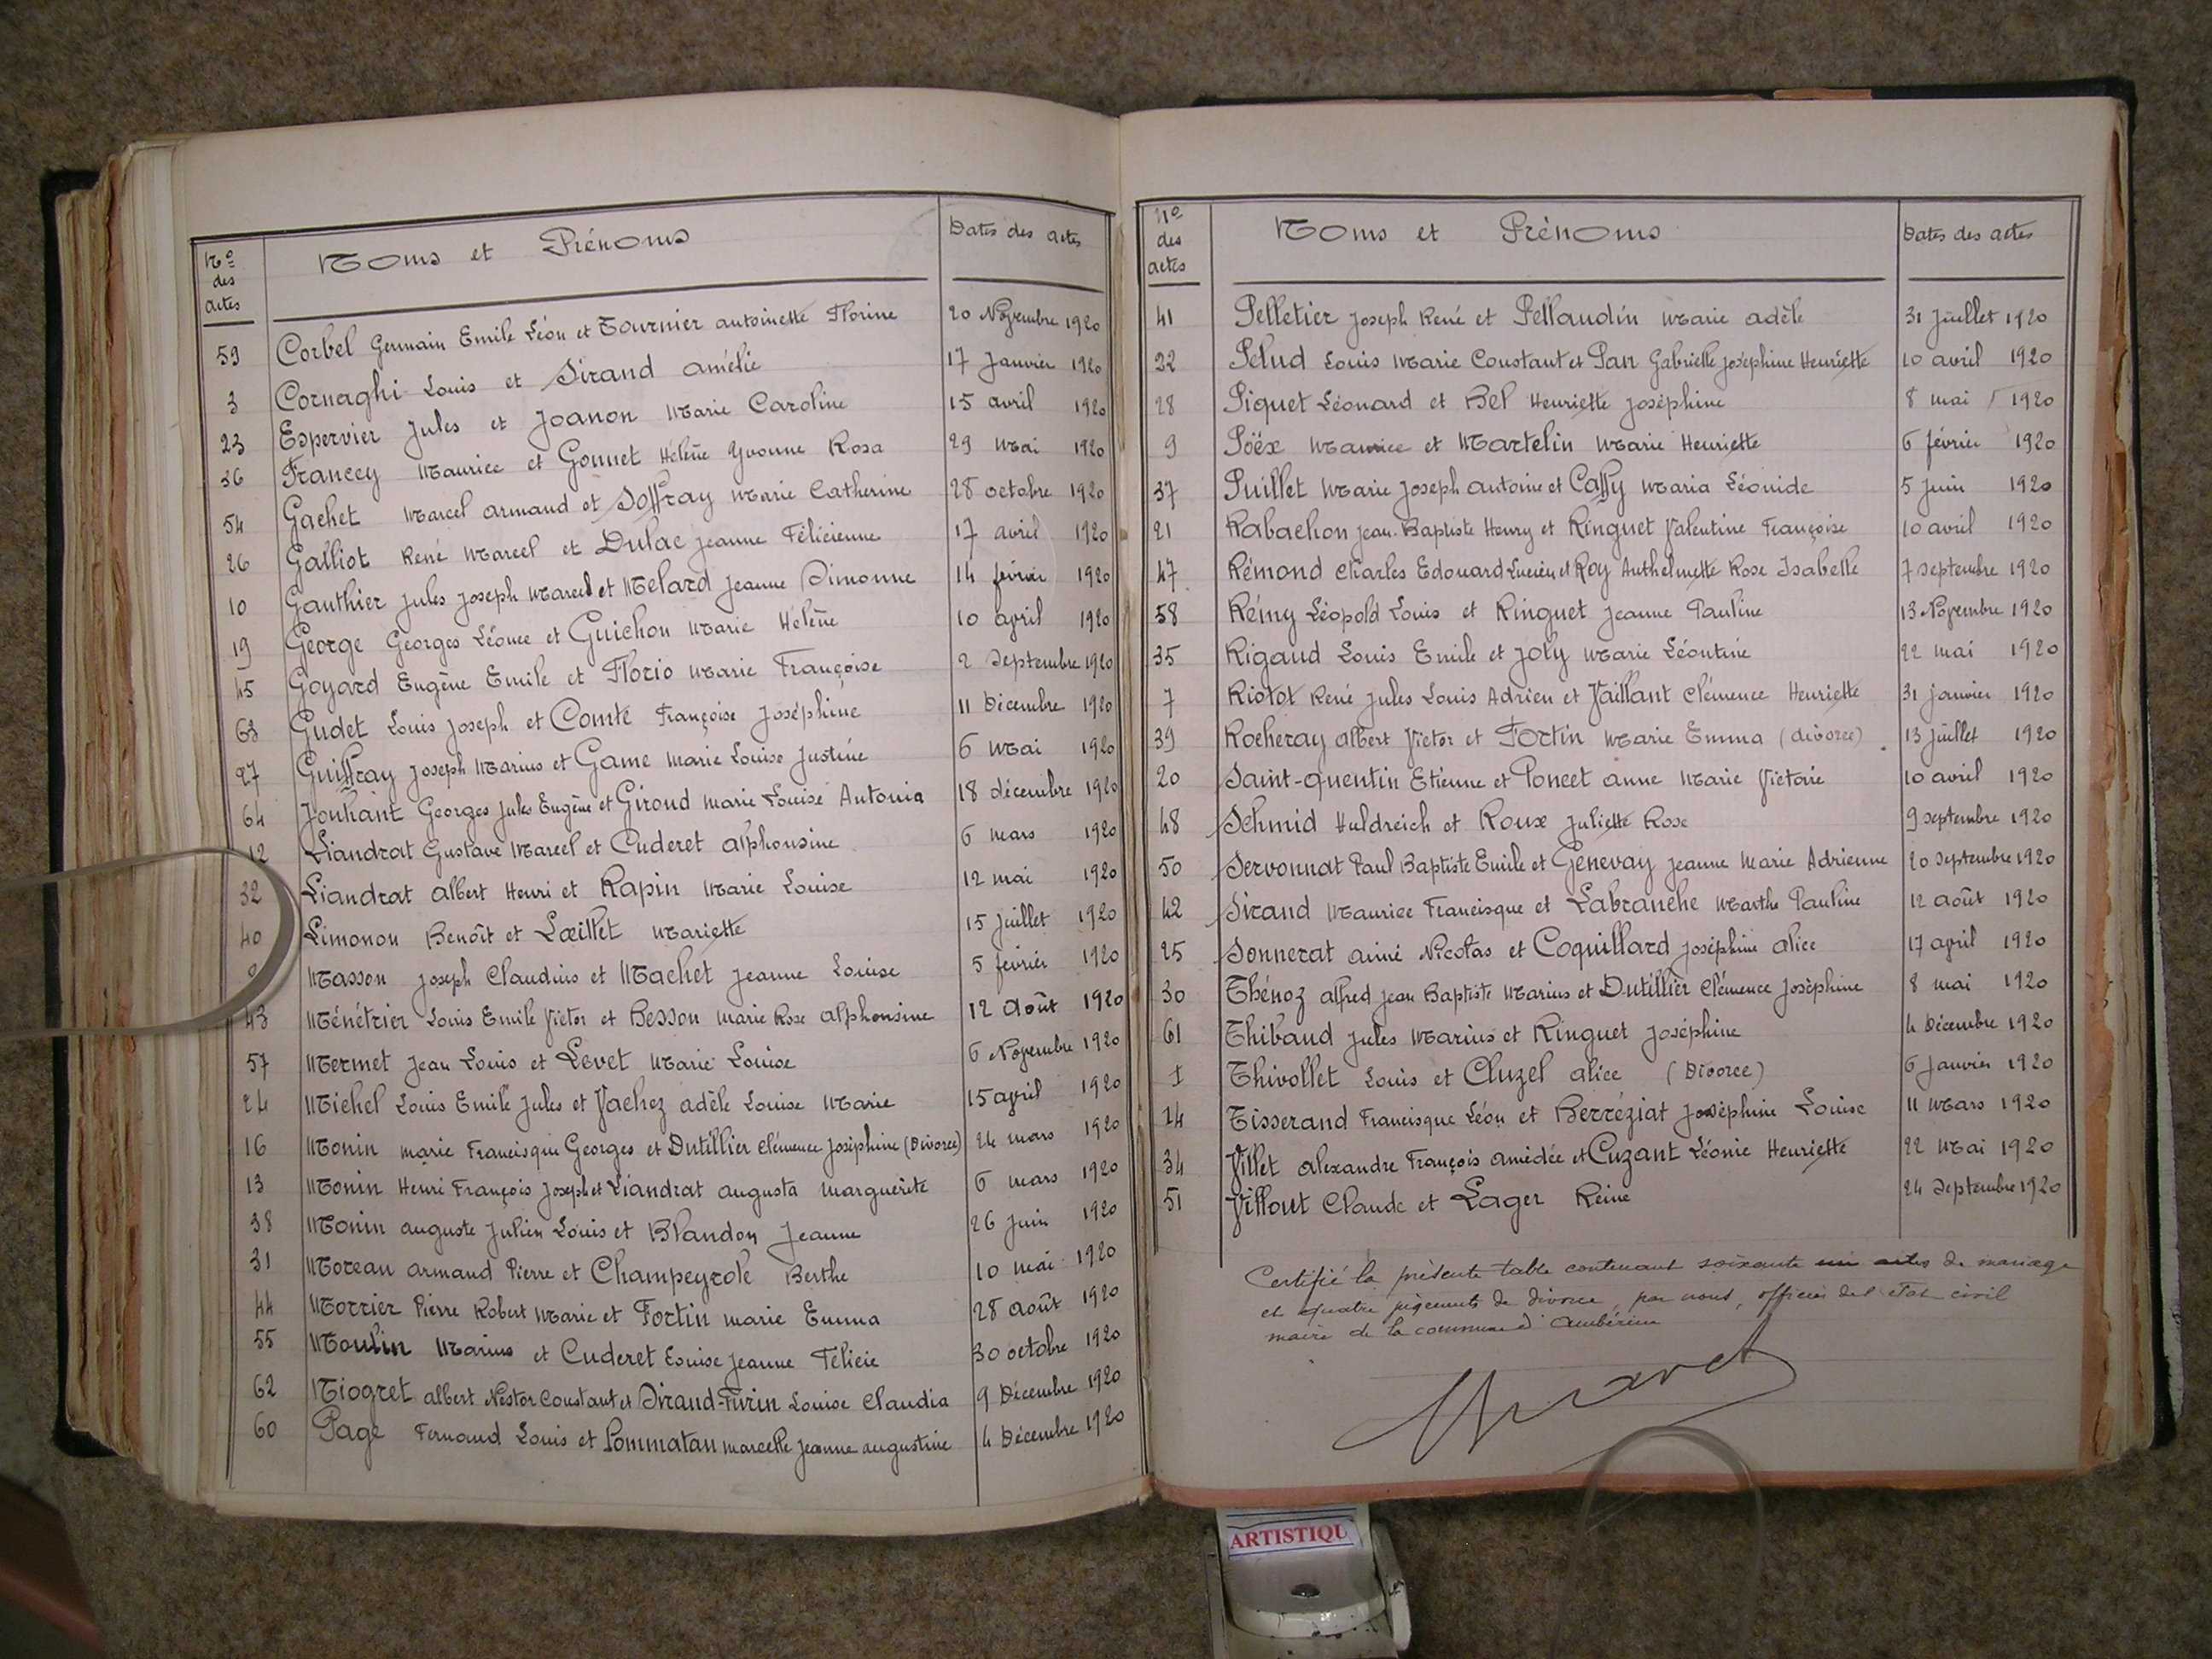 Nº des actes Noms et Prénoms Dates des actes
59 Corbel Germain Emile Léon et Tournier antoinette Florine 20 Novembre 1920
3 Cornaghi Louis et Sirand amélie 17 Janvier 1920
23 Espervier Jules et Joanon Marie Caroline 15 avril 1920
36 Francey Maurice et Gonnet Hélène Yvonne Rosa 29 Mai 1920
54 Gachet Marcel armand et Soffray Marie Catherine 28 octobre 1920
26 Galliot René Marcel et Dulac Jeanne Félicienne 17 avril 1920
10 Gauthier Jules Joseph Marcel et Melard Jeanne Simonne 14 février 1920
19 George Georges Léonce et Guichon Marie Hélène 10 avril 1920
45 Goyard Eugène Emile et Florio Marie Françoise 2 Septembre 1920
63 Gudet Louis Joseph et Comte Françoise Joséphine 11 Décembre 1920
27 Guiffray Joseph Marius et Game Marie Louise Justine 6 Mai 1920
64 Jouhant Georges Jules Eugène et Giroud Marie Louise Antonia 18 décembre 1920
12 Liandrat Gustave Marcel et Cuderet alphonsine 6 mars 1920
32 Liandrat albert Henri et Rapin Marie Louise 12 mai 1920
40 Limonon Benoît et Lœillet Mariette 15 Juillet 1920
Masson Joseph Claudius et Machet Jeanne Louise 5 février 1920
43 Ménétrier Louis Emile Victor et Besson Marie Rose alphonsine 12 Août 1920
57 Mermet Jean Louis et Levet Marie Louise 6 Novembre 1920
24 Michel Louis Emile Jules et Vachez adèle Louise Marie 15 avril 1920
16 Monin marie Francisque Georges et Dutillier Clémence Joséphine (Divorce) 24 mars 1920
13 Monin Henri François Joseph et Liandrat augusta Marguerite 6 mars 1920
38 Monin auguste Julien Louis et Blandon Jeanne 26 Juin 1920
31 Moreau armand Pierre et Champeyrole Berthe 10 mai 1920
44 Morrier Pierre Robert Marie et Fortin marie Emma 28 août 1920
55 Moulin Marius et Cuderet Louise Jeanne Félicie 30 octobre 1920
62 Niogret albert Nestor Constant et Sirand-Furin Louise Claudia 9 Décembre 1920
60 Page Fernand Louis et Pommatau marcelle Jeanne augustine 4 Décembre 1920
Nº des actes Noms et Prénoms Dates des actes
41 Pelletier Joseph René et Pellaudin Marie adèle 31 Juillet 1920
22 Pelud Louis Marie Constant et Pan Gabrielle Joséphine Henriette 10 avril 1920
28 Piquet Léonard et Bel Henriette Joséphine 8 mai 1920
9 Poëx Maurice et Martelin Marie Henriette 6 février 1920
37 Puillet Marie Joseph antoine et Caffy Maria Léonide 5 Juin 1920
21 Rabachon Jean-Baptiste Henry et Ringuet Valentine Françoise 10 avril 1920
47 Rémond Charles Edouard Lucien et Roy Anthelmette Rose Isabelle 7 septembre 1920
58 Rémy Léopold Louis et Ringuet Jeanne Pauline 13 Novembre 1920
35 Rigaud Louis Emile et Joly Marie Léontine 22 mai 1920
7 Riotot René Jules Louis Adrien et Vaillant Clémence Henriette 31 janvier 1920
39 Rocheray albert Victor et Fortin Marie Emma (divorce) 13 juillet 1920
20 Saint-Quentin Etienne et Poncet anne Marie Victorie 10 avril 1920
48 Schmid Huldreich et Roux Juliette Rose 9 septembre 1920
50 Servonnat Paul Baptiste Emile et Genevay Jeanne Marie Adrienne 20 Septembre 1920
42 Sirand Maurice Francisque et Labranche Marthe Pauline 12 août 1920
25 Sonnerat aimé Nicolas et Coquillard Joséphine alice 17 avril 1920
30 Thénoz alfred Jean Baptiste Marius et Dutillier Clémence Joséphine 8 mai 1920
61 Thibaud Jules Marius et Ringuet Joséphine 4 Décembre 1920
1 Thivollet Louis et Cluzel alice (Divorce) 6 Janvier 1920
14 Tisserand Francisque Léon et Berréziat Joséphine Louise 11 Mars 1920
34 Villet alexandre François amédée et Cuzant Léonie Henriette 22 Mai 1920
51 Villout Claude et Lager Reine 24 Septembre 1920
Certifié la présente table contenant soixante un actes de mariage
et quatre jugements de divorce, par nous, officier de l'état civil
maire de la commune d'Ambérieu
ARTISTIQU